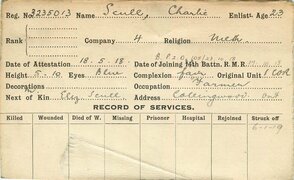 Reg. No. 3235013 Name Scull, Charlie Enlist. Age 23
Rank Company 4 Religion Meth.
Date of Attestation 18.5.18. Date of Joining 14th Battn. R.M.R.
Height 5-10 Eyes Blue Complexion fair Original Unit 1 COR
Decorations Occupation Farmer
Next of Kin Eliz. Scull. Address Collingwood Ont
RECORD OF SERVICES.
Killed Wounded Died of W. Missing Prisoner Hospital Rejoined Struck off
6-1-19